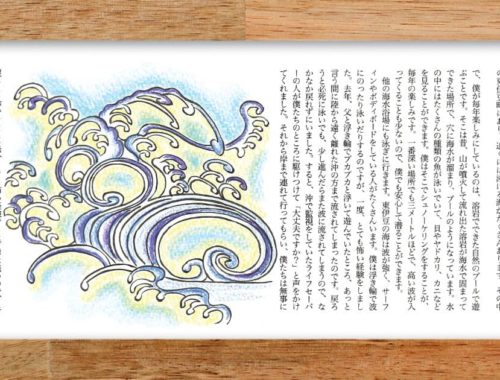 その中
で、僕が毎年楽しみにしているのは、溶岩でできた自然のプールで遊
ぶことです。そこは昔、山が噴火して流れ出た溶岩が海水で固まって
できた場所で、穴に海水が溜まり、プールのようになっています。水
の中にはたくさんの種類の魚が泳いでいて、貝やヤドカリ、カニなど
を見ることができます。僕はそこでシュノーケリングをすることが、
毎年の楽しみです。一番深い場所でも三メートルほどで、高い波が入
ってくることも少ないので、僕でも安心して潜ることができます。
他の海水浴場にも泳ぎに行きます。東伊豆の海は波が強く、サーフ
ィンやボディボードをしている人がたくさんいます。僕は浮き輪で波
にのったり泳いだりするのですが、一度、とても怖い経験をしまし
た。去年、父と浮き輪でプカプカと浮いて遊んでいたところ、あっと
言う間に陸から遠く離れた沖の方まで流されてしまったのです。戻ろ
うと必死に泳いでも、少し進んだらまた波に流されてしまうので、な
かなか戻れずにいました。すると、沖で監視をしていたライフセーバ
ーの人が僕たちのところに駆けつけて「大丈夫ですか？」と声をかけ
てくれました。それから岸まで連れて行ってもらい、僕たちは無事に